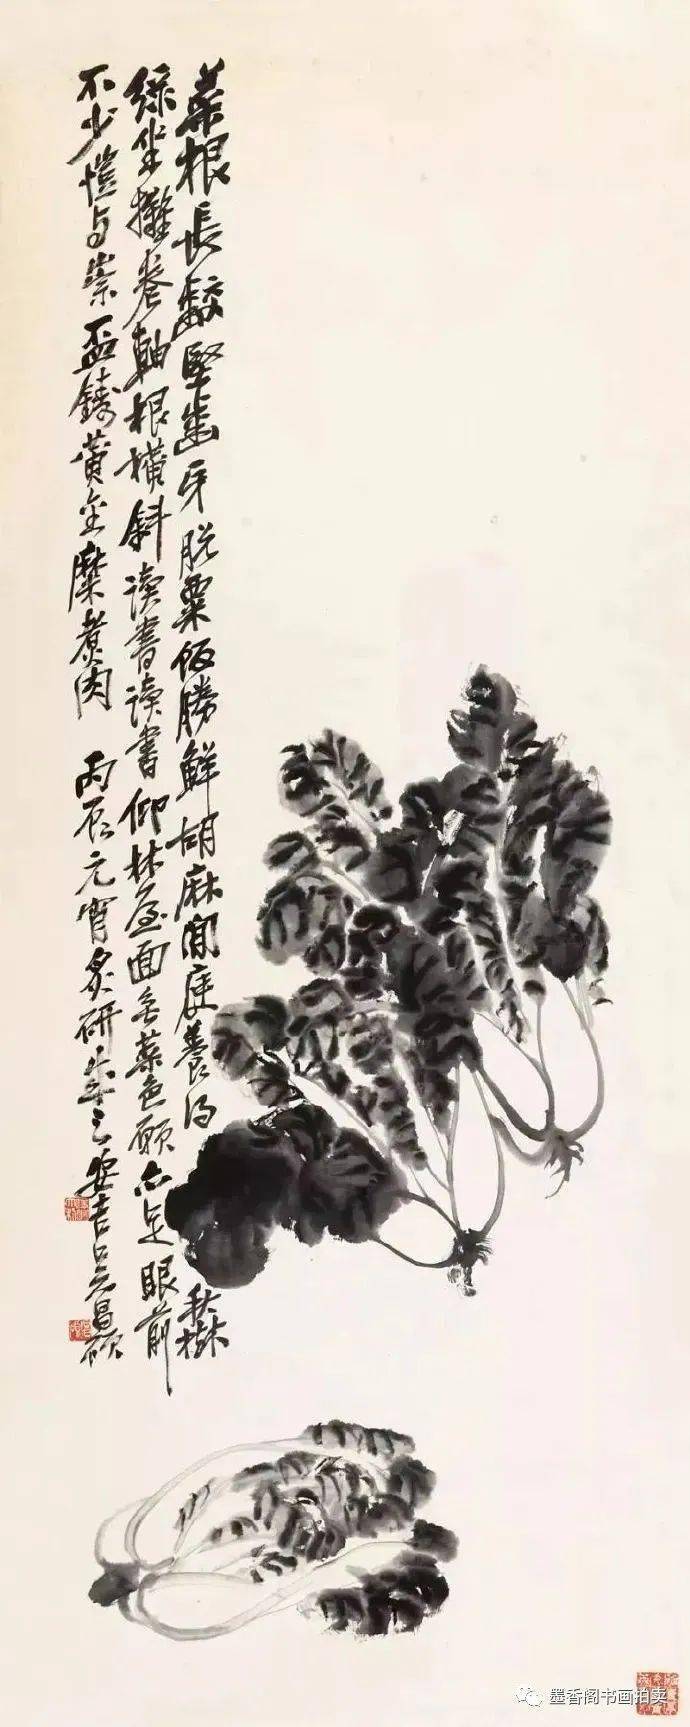 菜根長齩堅齒牙脱粟飯勝鮮胡麻閒庭養得秋樹
綠坐攤卷軸根橫斜讀書讀書仰林屋面無菜色願亦足眼前
不少愷與崇盃鑄黃金糜煮肉 丙辰元宵炙研成之安吉吳昌碩
墨香阁书画拍卖